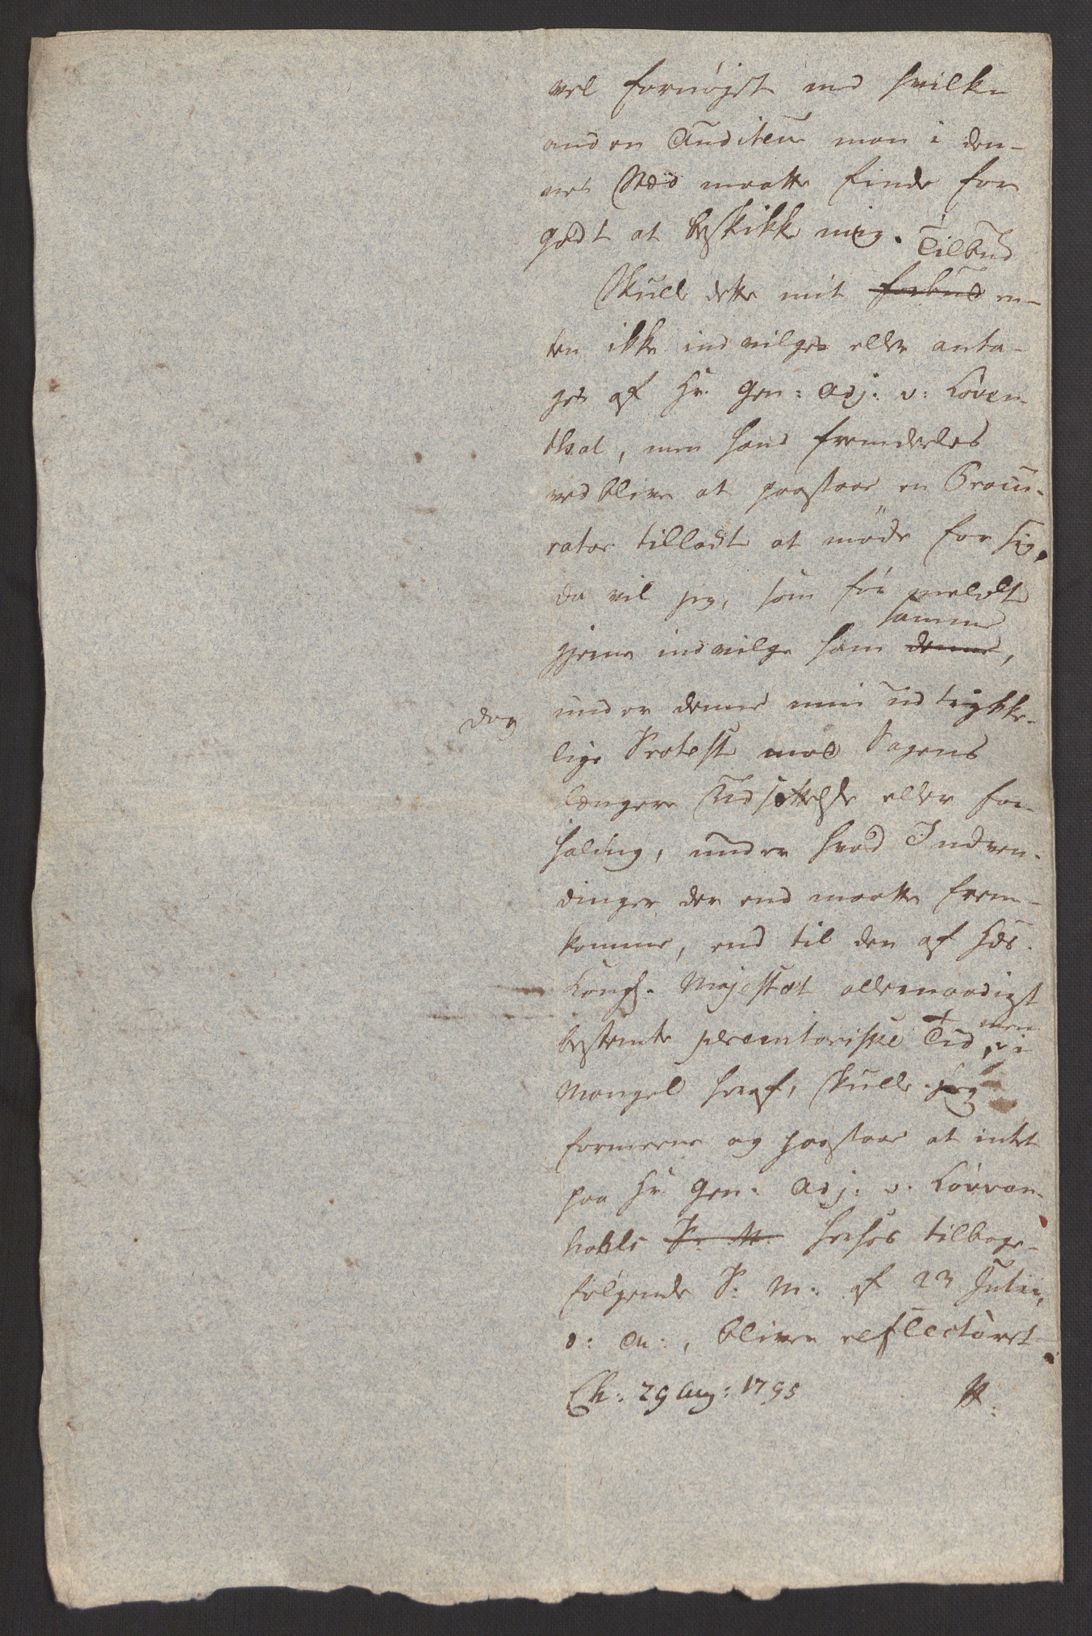 vel fornøyet med hvilken
anden Auditeur man i den-
ne Stæd maatte finde for
godt at beskikke mig. Tilbud
Skulle dette mit forbud en-
ten ikke indvilges eller anta-
ges af Hr. Gen: Adj. v: Löven-
thal, men hand fremdeeles
vedblive at paastaae en Procu-
rator tilladt at møde for sig,
da vil jeg, som før meldt
samme
gjerne indvilge ham denne,
dog under denne min udtrykke-
lige Protest mod Sagens
længere Udsættelse eller for-
haling, under hvad Indven-
dinger der end maatte frem-
komme, end til den af Hds.
Kongl. Majestæt allernaadigst
bestemte peremtoriske Tid, men i
Mangel heraf, skulle jeg
formeene og paastaae at intet
paa Hr. Gen. Adj. v. Löwen-
thals P. M. herhos tilbage-
følgende P. M. af 23 Julii,
d: A:, bliver reflecteret
Ch: 29 Aug: 1795